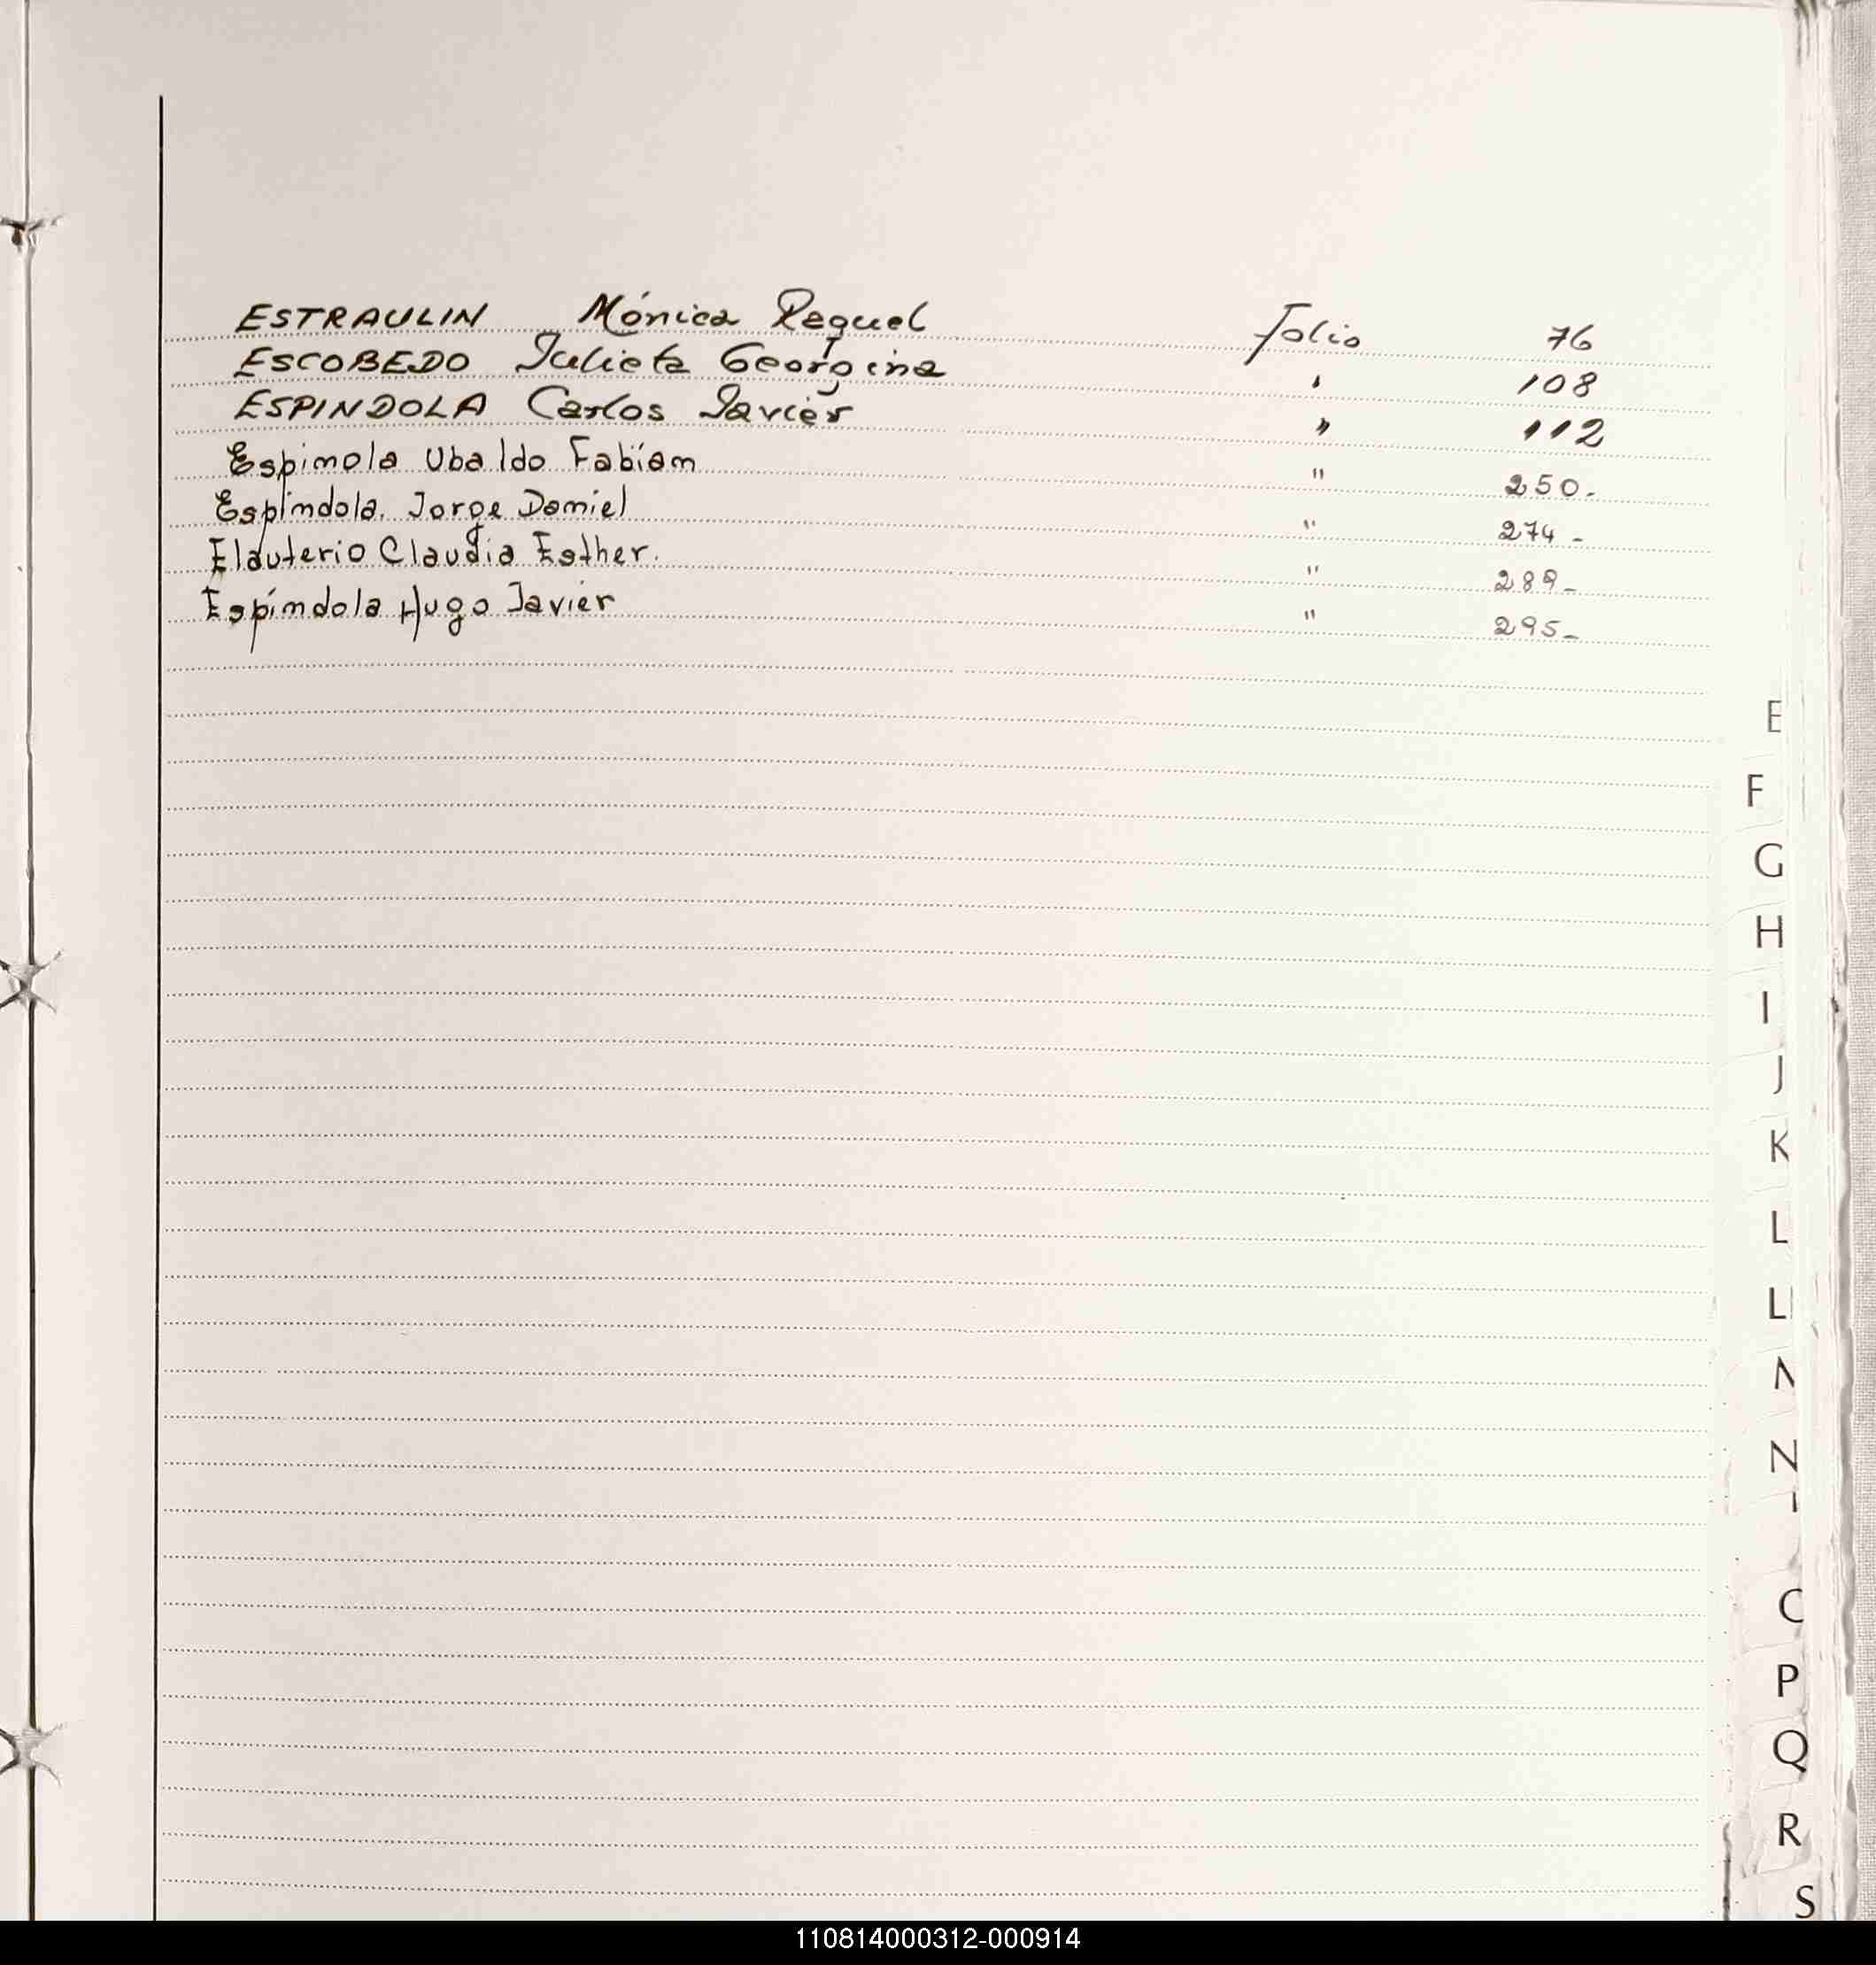 ESTRAULIN Mónica Raquel Folio 76
ESCOBEDO Julieta Georgina " 108
ESPINDOLA Carlos Javier " 112
Espinola Ubaldo Fabián " 250-
Espindola Jorge Daniel " 274-
Elauterio Claudia Esther. " 289-
Espíndola Hugo Javier " 295-
E
F
G
H
I
J
K
L
N
P
Q
R
S
110814000312-000914